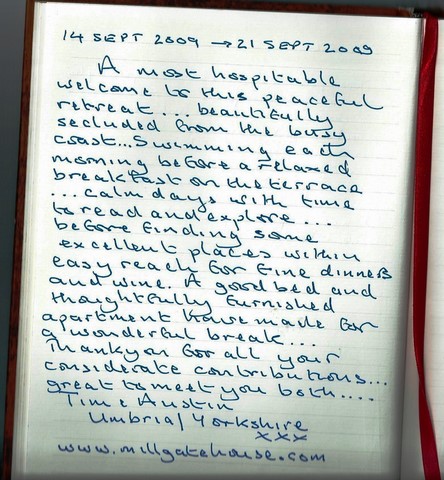 14 SEPT 2009 → 21 SEPT 2009
A most hospitable
welcome to this peaceful
retreat... beautifully
secluded from the busy
coast... Swimming each
morning before a relaxed
breakfast on the terrace
... calm days with time
to read and explore...
before finding some
excellent places within
easy reach for fine dinners
and wine. A good bed and
thoughtfully furnished
apartment have made for
a wonderful break...
Thankyou for all your
considerate contributions...
great to meet you both....
Tim & Austin
Umbria/Yorkshire
xxx
www.millgatehouse.com